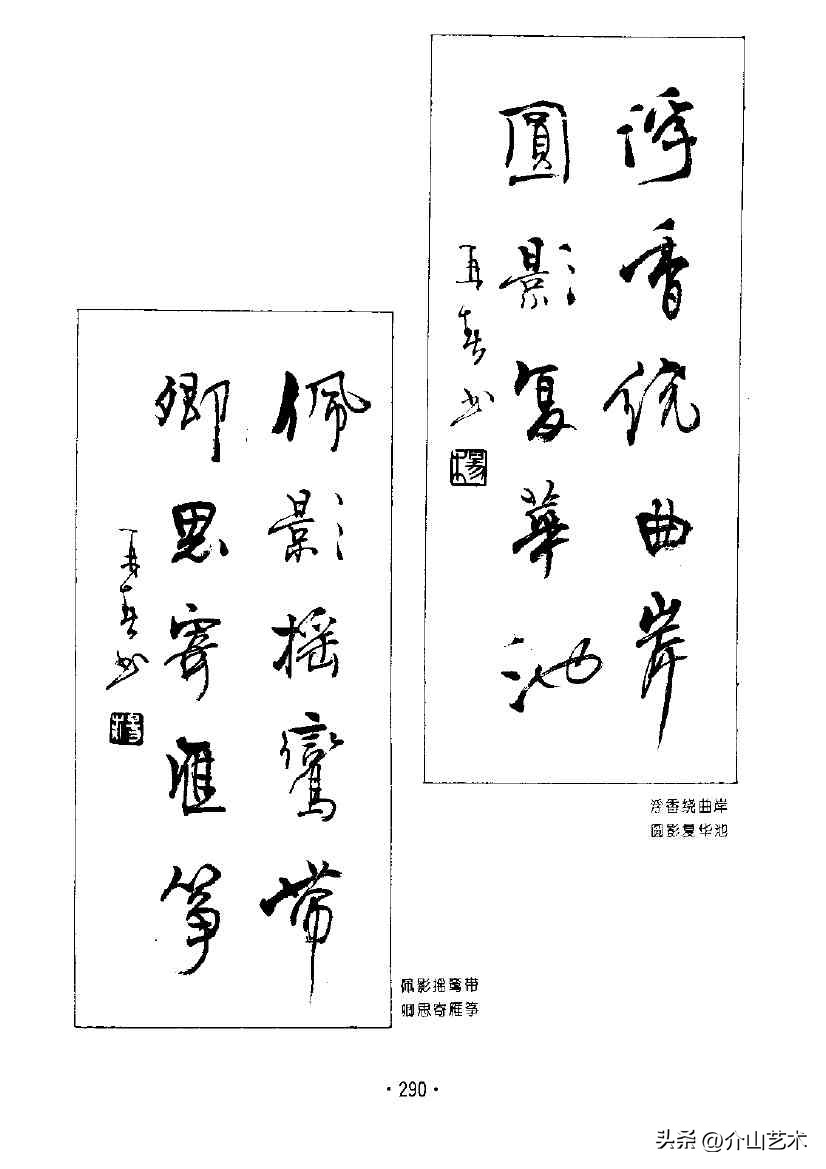 浮香绕曲岸
圓影复華池
再春书
楊
浮香绕曲岸
圆影复华池
佩影摇鸞带
卿思寄雁筝
再春书
楊
佩影摇鸾带
卿思寄雁筝
·290·
头条 @介山艺术